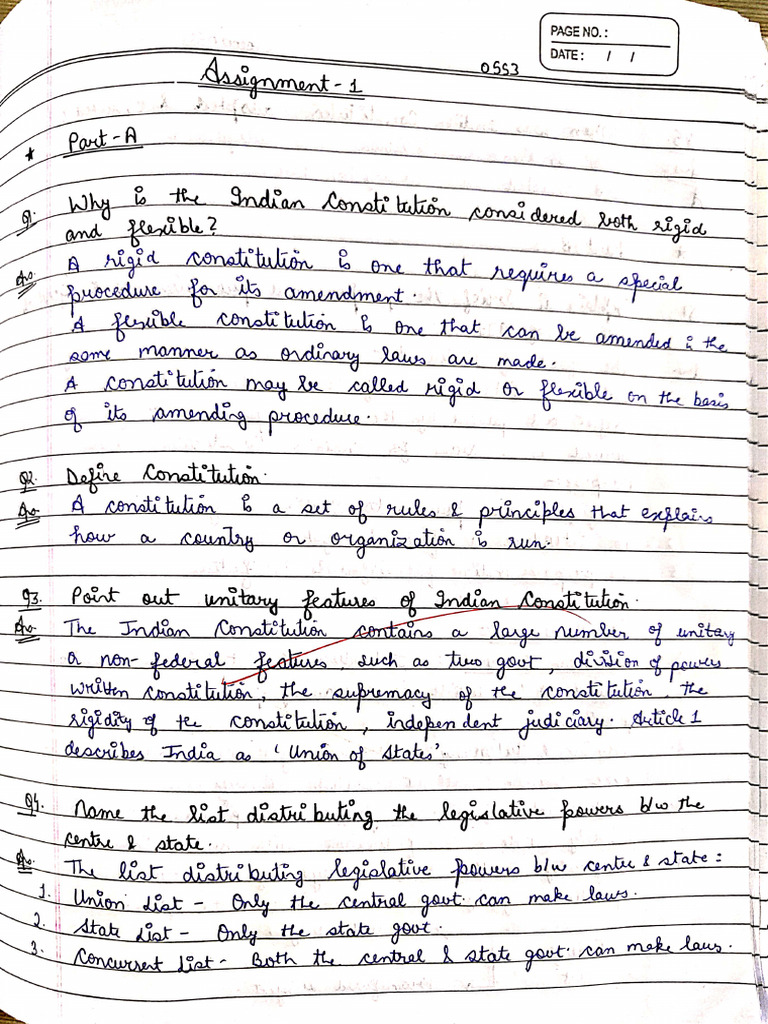 PAGE NO.:
DATE: / /
0553
Assignment-1
* Part-A
Q1. Why is the Indian Constitution considered both rigid
and flexible?
Ans. A rigid constitution is one that requires a special
procedure for its amendment.
A flexible constitution is one that can be amended in the
same manner as ordinary laws are made.
A constitution may be called rigid or flexible on the basis
of its amending procedure.
Q2. Define Constitution.
Ans. A constitution is a set of rules & principles that explains
how a country or organization is run.
Q3. Point out unitary features of Indian Constitution.
Ans. The Indian Constitution contains a large number of unitary
a non-federal features, such as two govt, division of powers
written constitution, the supremacy of the constitution, the
rigidity of the constitution, independent judiciary. Article 1
describes India as 'Union of States'.
Q4. Name the list distributing the legislative powers b/w the
centre & state.
Ans. The list distributing legislative powers b/w centre & state:
1. Union List - Only the central govt. can make laws.
2. State List - Only the state govt.
3. Concurrent List - Both the central & state govt. can make laws.